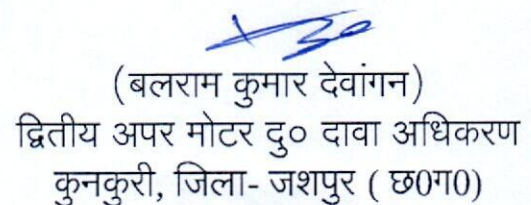 (बलराम कुमार देवांगन)
द्वितीय अपर मोटर दु० दावा अधिकरण
कुनकुरी, जिला- जशपुर ( छ0ग0)